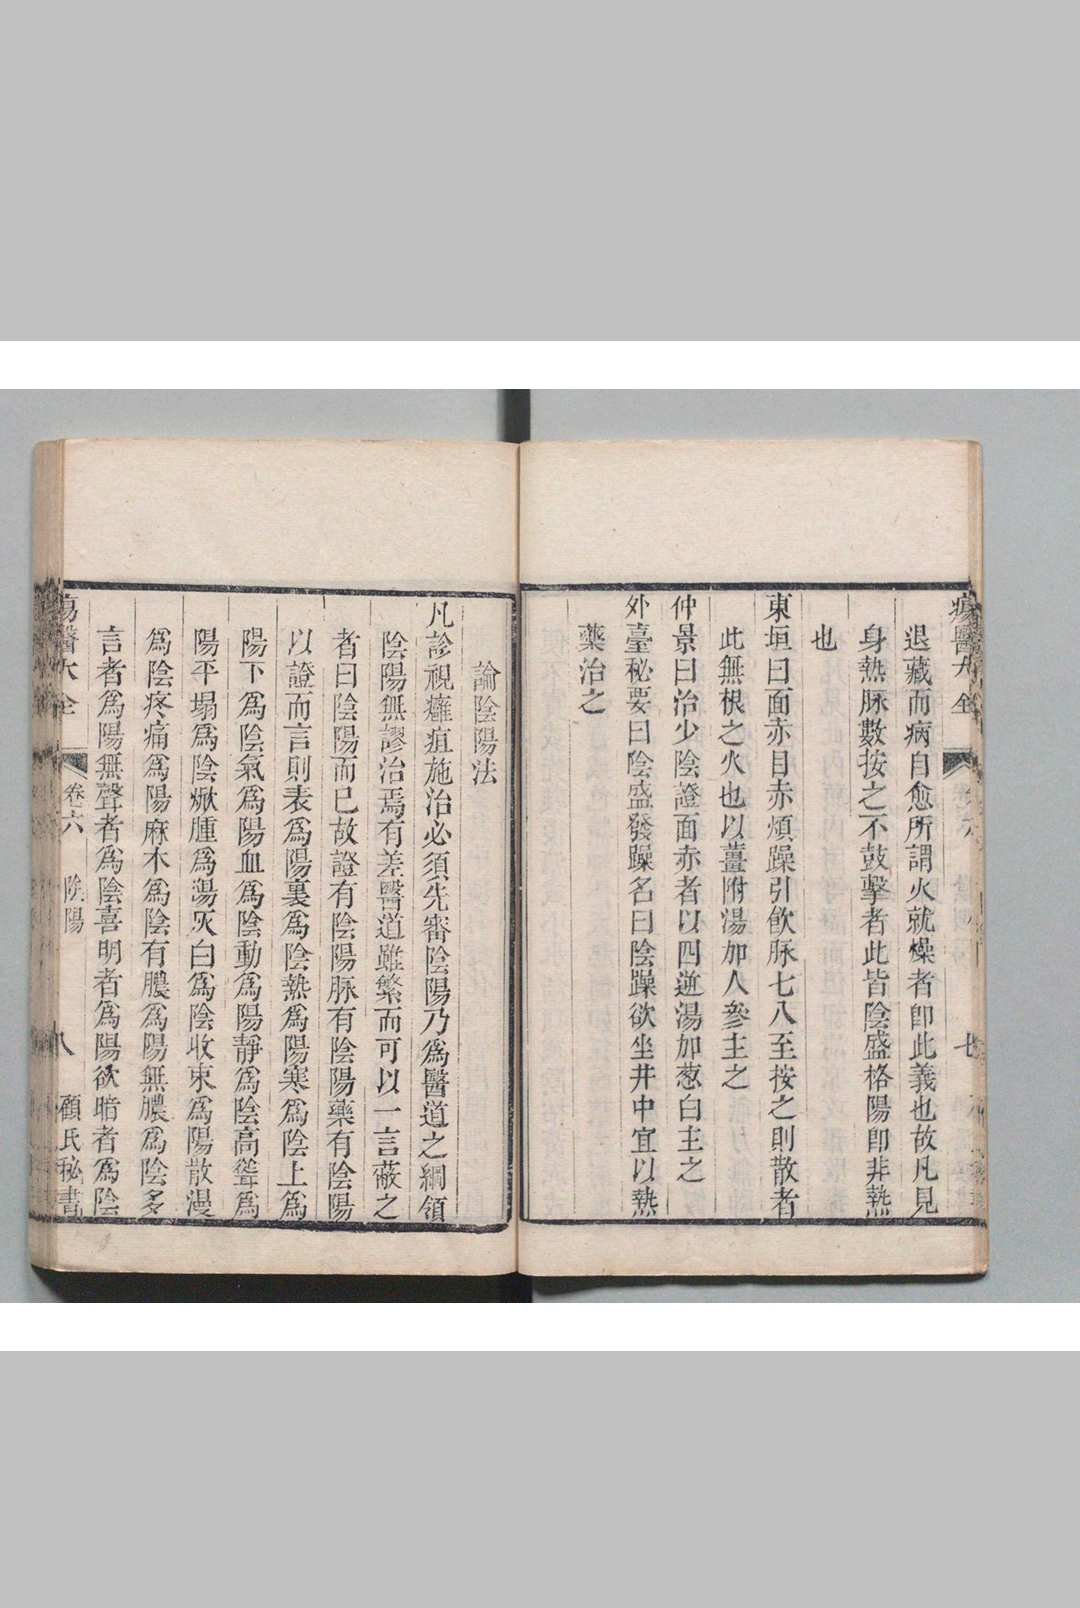 瘍醫大全
退藏而病自愈所謂火就燥者卽此義也故凡見
身熱脉數按之不鼓擊者此皆陰盛格陽卽非熱
也
東垣曰面赤目赤煩躁引飲脉七八至按之則散者
此無根之火也以薑附湯加人參主之
仲景曰治少陰證面赤者以四逆湯加葱白主之
外臺秘要曰陰盛發躁名曰陰躁欲坐井中宜以熱
藥治之
論陰陽法
凡診視癰疽施治必須先審陰陽乃爲醫道之綱領
陰陽無謬治焉有差醫道雖繁而可以一言蔽之
者曰陰陽而已故證有陰陽脉有陰陽藥有陰陽
以證而言則表爲陽裏爲陰熱爲陽寒爲陰上爲
陽下爲陰氣爲陽血爲陰動爲陽靜爲陰高聳爲
陽平塌爲陰焮腫爲陽灰白爲陰收束爲陽散漫
爲陰疼痛爲陽麻木爲陰有膿爲陽無膿爲陰多
言者爲陽無聲者爲陰喜明者爲陽欲暗者爲陰
瘍醫大全 卷六 陰陽 八 顧氏秘書